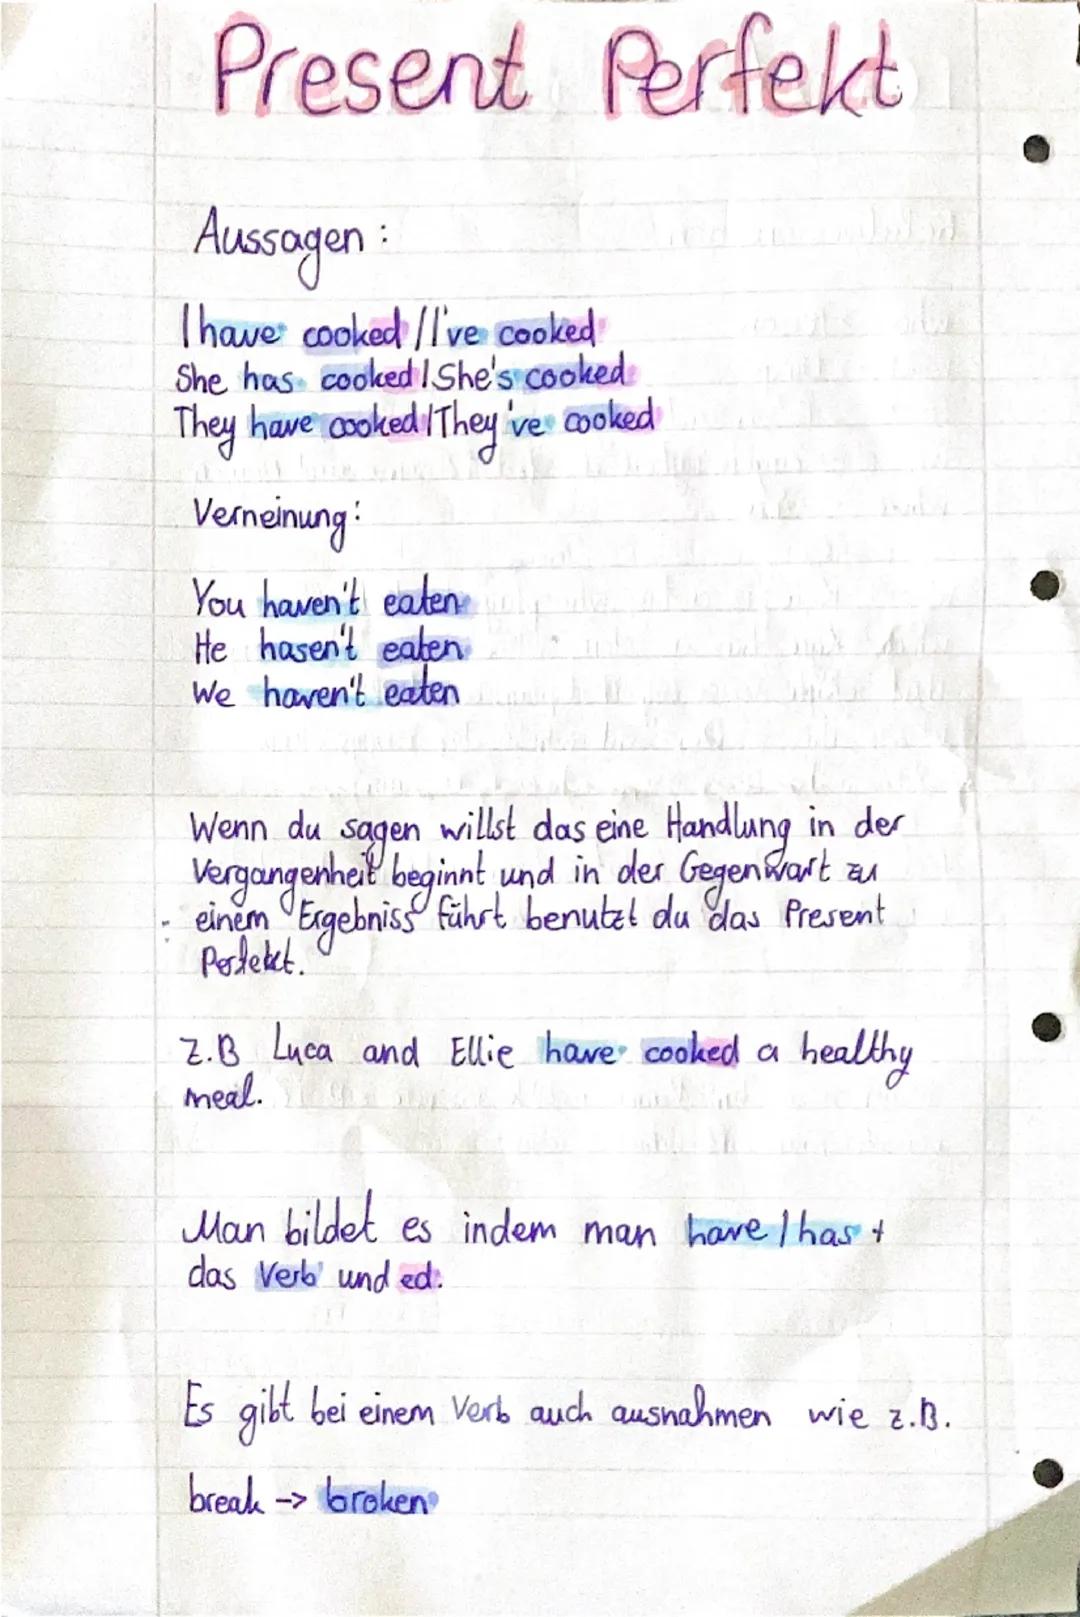 Present Perfekt
Aussagen:
I have cooked / I've cooked
She has cooked / She's cooked
They have cooked / They've cooked
Verneinung:
You haven't eaten
He hasen't eaten
We haven't eaten
Wenn du sagen willst das eine Handlung in der
Vergangenheit beginnt und in der Gegenwart zu
einem Ergebniss führt benutzt du das Present
Perfekt.
z.B Luca and Ellie have cooked a healthy
meal.
Man bildet es indem man have / has +
das Verb und ed.
Es gibt bei einem Verb auch ausnahmen wie z.B.
break -> broken